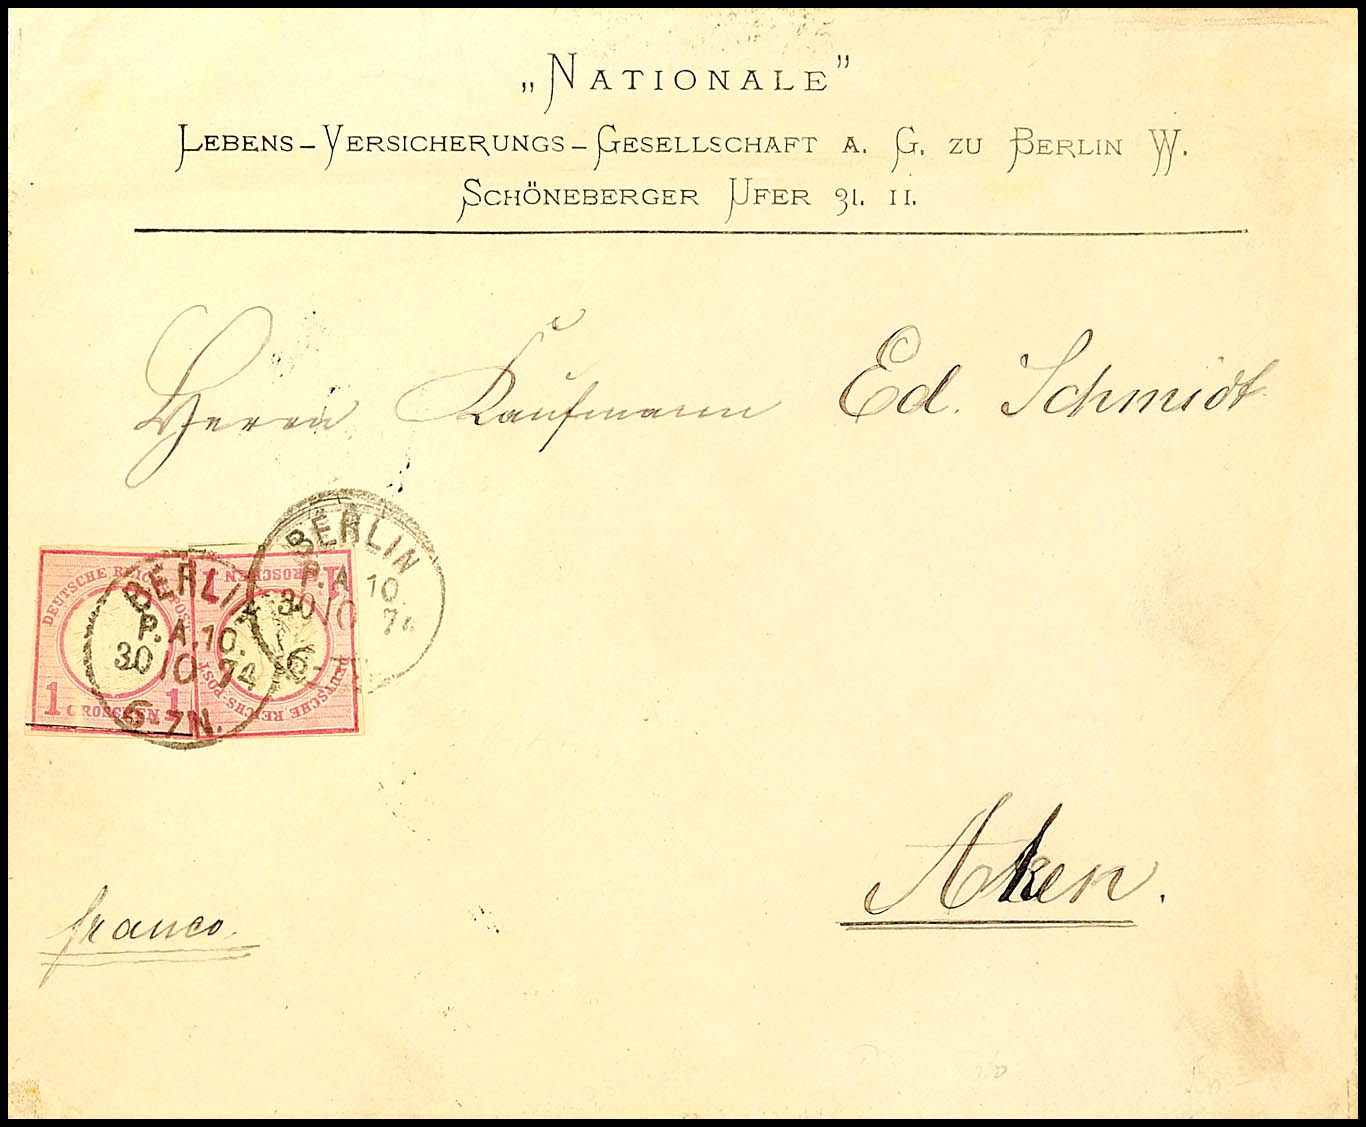 „Nationale”
Lebens-Versicherungs-Gesellschaft a. G. zu Berlin W.
Schöneberger Ufer 31. II.
Herrn Kaufmann Ed. Schmidt
BERLIN
P.A. 10.
30 10 74
DEUTSCHE REICHS-POST
1 GROSCHEN 1
BERLIN
P.A. 10.
30 10 74
6-7N.
1 GROSCHEN 1
DEUTSCHE REICHS-POST
Aken.
franco.